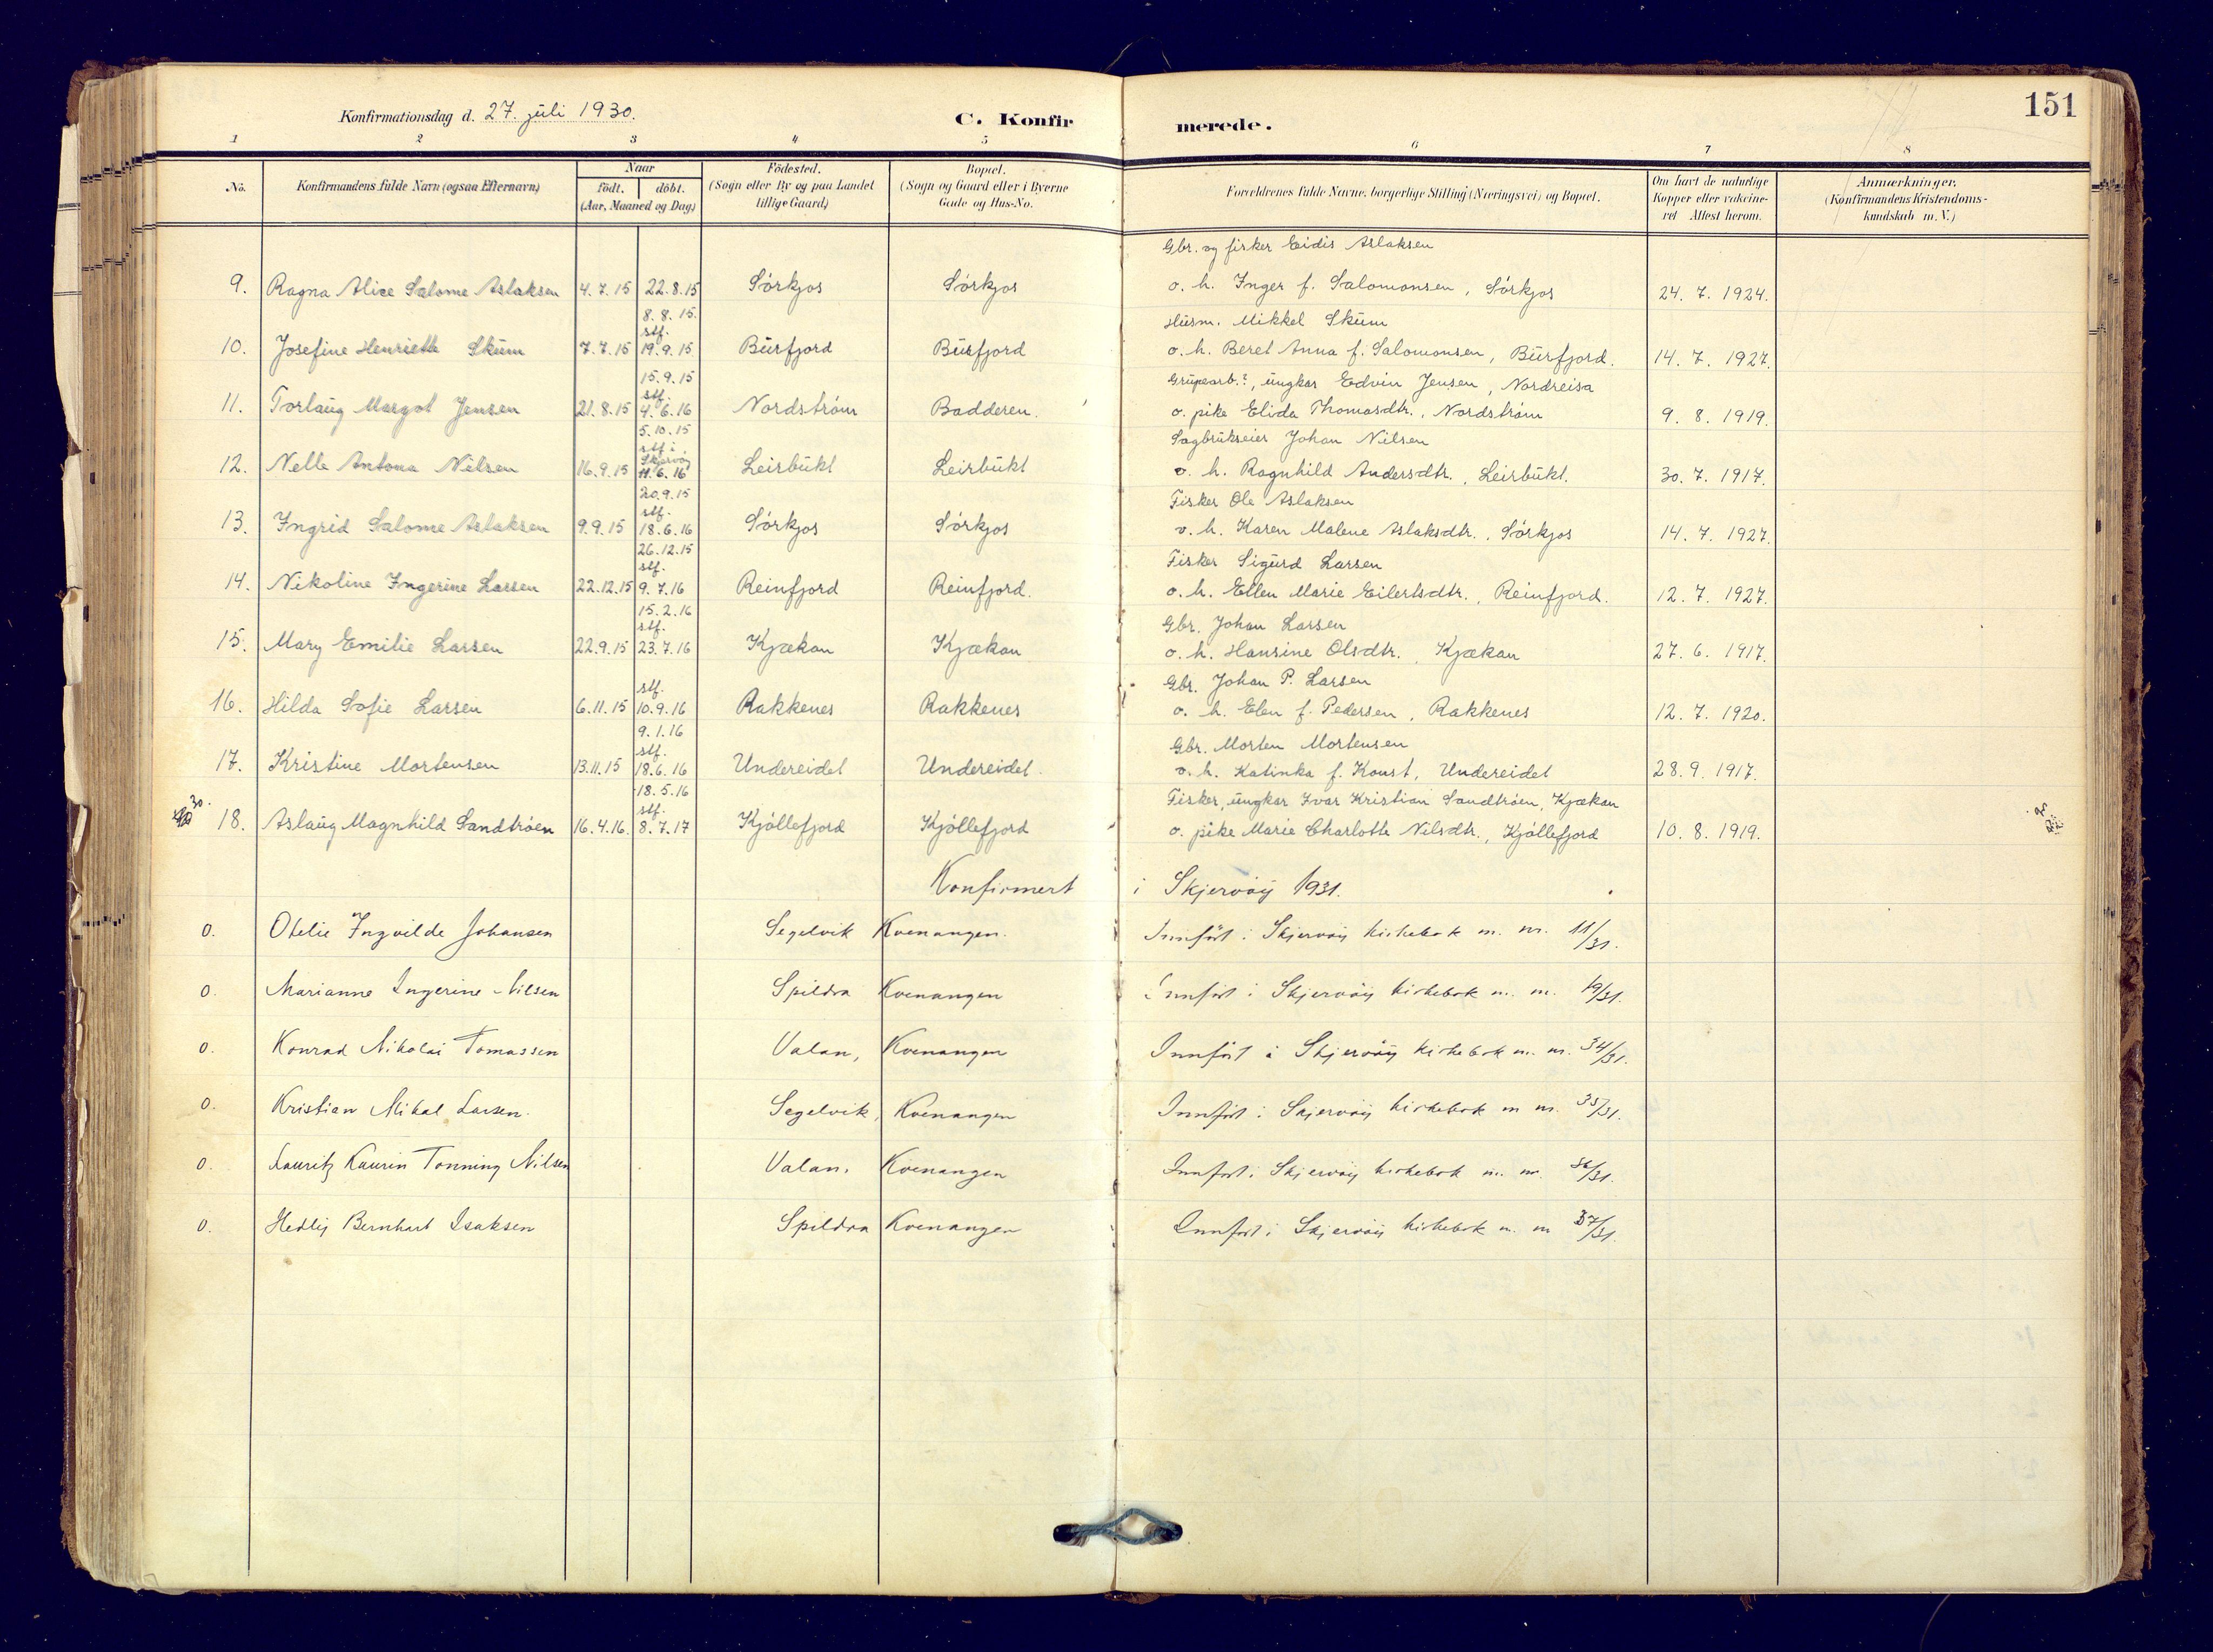 151
Konfirmationsdag d. 27. juli 1930.
C. Konfirmerede.
1 2 3 4 5 6 7 8
No.
Konfirmandens fulde Navn (ogsaa Efternavn)
Naar
födt. döbt.
(Aar, Maaned og Dag)
Födested.
(Sogn eller By og paa Landet
tillige Gaard)
Bopæl.
(Sogn og Gaard eller i Byerne
Gade og Hus-No.
Forældrenes fulde Navne, borgerlige Stilling (Næringsvei) og Bopæl.
Om havt de naturlige
Kopper eller vakcine-
ret Attest herom.
Anmærkninger.
(Konfirmandens Kristendoms-
kundskab m. V.)
Gbr. og fisker Eidis Aslaksen
9. Ragna Alice Salome Aslaksen 4.7.15 22.8.15 Sörkjos Sörkjos o. h. Inger f. Salomonsen, Sörkjos 24. 7. 1924.
8. 8. 15.
stf. Husm. Mikkel Skum
10. Josefine Henriette Skum 7.7.15 19.9.15 Burfjord Burfjord o. h. Beret Anna f. Salomonsen, Burfjord. 14. 7. 1927.
15.9.15
stf. ungkar Edvin Jensen, Nordreisa
11. Torlaug Margot Jensen 21.8.15 4.6.16 Nordström Badderen. o. pike Elida Thomasdtr., Nordström 9. 8. 1919.
5.10.15
stf. i Sagbrukseier Johan Nilsen
Skjervöy
12. Nelle Antona Nilsen 16.9.15 11.6.16 Leirbukt Leirbukt o. h. Ragnhild Andersdtr., Leirbukt. 30. 7. 1917.
20.9.15
stf. Fisker Ole Aslaksen
13. Ingrid Salome Aslaksen 9.9.15 18.6.16 Sörkjos Sörkjos o. h. Karen Malene Aslaksdtr., Sörkjos 14. 7. 1927.
26.12.15
stf. Fisker Sigurd Larsen
14. Nikoline Ingerine Larsen 22.12.15 9.7.16 Reinfjord Reinfjord. o. h. Ellen Marie Eilertsdtr., Reinfjord. 12. 7. 1927.
15.2.16
stf. Gbr. Johan Larsen
15. Mary Emilie Larsen 22.9.15 23.7.16 Kjækan Kjækan o. h. Hansine Olsdtr., Kjækan 27. 6. 1917.
stf. Gbr. Johan P. Larsen
16. Hilda Sofie Larsen 6.11.15 10.9.16 Rakkenes Rakkenes o. h. Elen f. Pedersen, Rakkenes 12. 7. 1920.
9.1.16
stf. Gbr. Morten Mortensen
17. Kristine Mortensen 13.11.15 18.6.16 Undereidet Undereidet. o. h. Katinka f. Koust, Undereidet 28.9. 1917.
18.5.16
30. stf. Fisker, ungkar Ivar Kristian Sandtröen, Kjækan
18. Aslaug Magnhild Sandtröen 16.4.16. 8.7.17 Kjöllefjord Kjöllefjord o. pike Marie Charlotte Nilsdtr., Kjöllefjord 10. 8. 1919.
Konfirmert i Skjervöy 1931.
0. Otelie Ingvilde Johansen Segelvik Kvenangen. Innfört i Skjervöy kirkebok m. nr. 11/31.
0. Marianne Ingerine Nilsen Spildra Kvenangen Innfört i Skjervöy kirkebok m. nr. 19/31.
0. Konrad Nikolai Tomassen Valan, Kvenangen Innfört i Skjervöy kirkebok m. nr. 34/31.
0. Kristian Mikal Larsen. Segelvik, Kvenangen Innfört i Skjervöy kirkebok m nr. 35/31.
0. Lauritz Kaurin Tonning Nilsen Valan, Kvenangen Innfört i Skjervöy kirkebok m. nr. 36/31.
0. Hedlej Bernhart Isaksen Spildra Kvenangen Innfört i Skjervöy kirkebok m. nr 37/31.